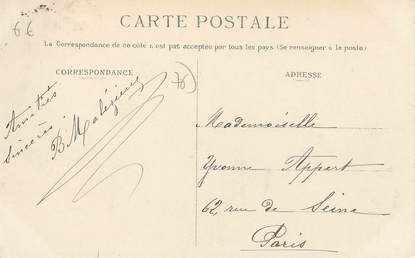 6€
CARTE POSTALE
La Correspondance de ce côté n'est pas acceptée par tous les pays (Se renseigner à la poste)
CORRESPONDANCE
76
Amitiés
sincères
B Malézieux
ADRESSE
Mademoiselle
Yvonne Appert
62, rue de Seine
Paris